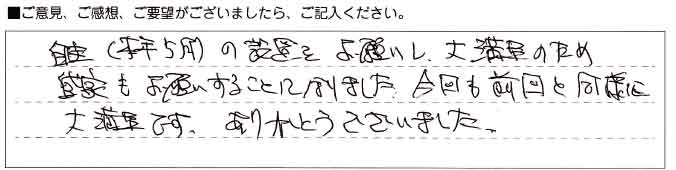 ■ご意見、ご感想、ご要望がございましたら、ご記入ください。
自宅（本年5月）の設置をお願いし、大満足のため
実家もお願いすることになりました。今回も前回と同様に
大満足です。ありがとうございました。